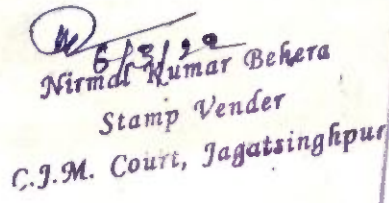 6/3/22
Nirmal Kumar Behera
Stamp Vender
C.J.M. Court, Jagatsinghpur